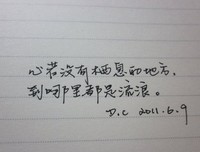 心若没有栖息的地方,
到哪里都是流浪。
D.C 2011.6.9